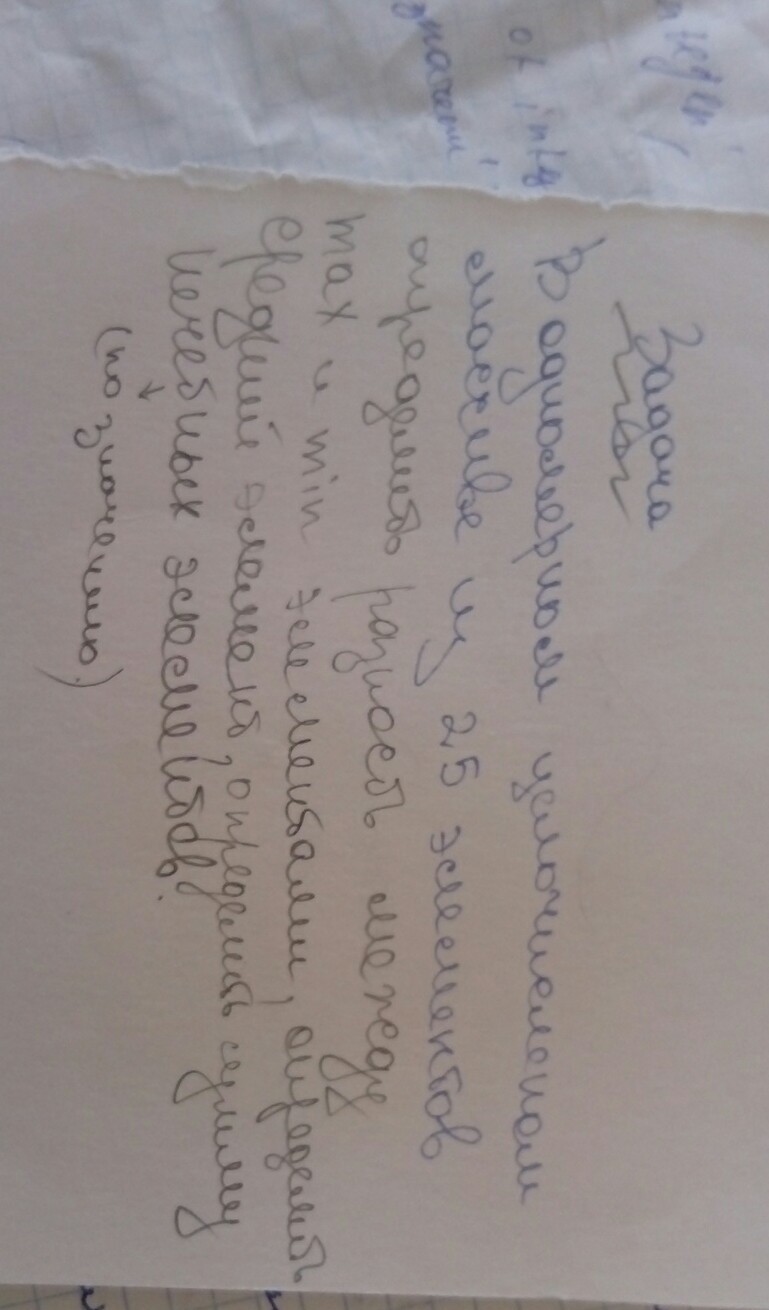 Задача
В одномерном целочисленом
массиве из 25 элементов
определить разность между
max и min элементами, определить
средний элемент, определить сумму
нечетных элементов.
(по значению)